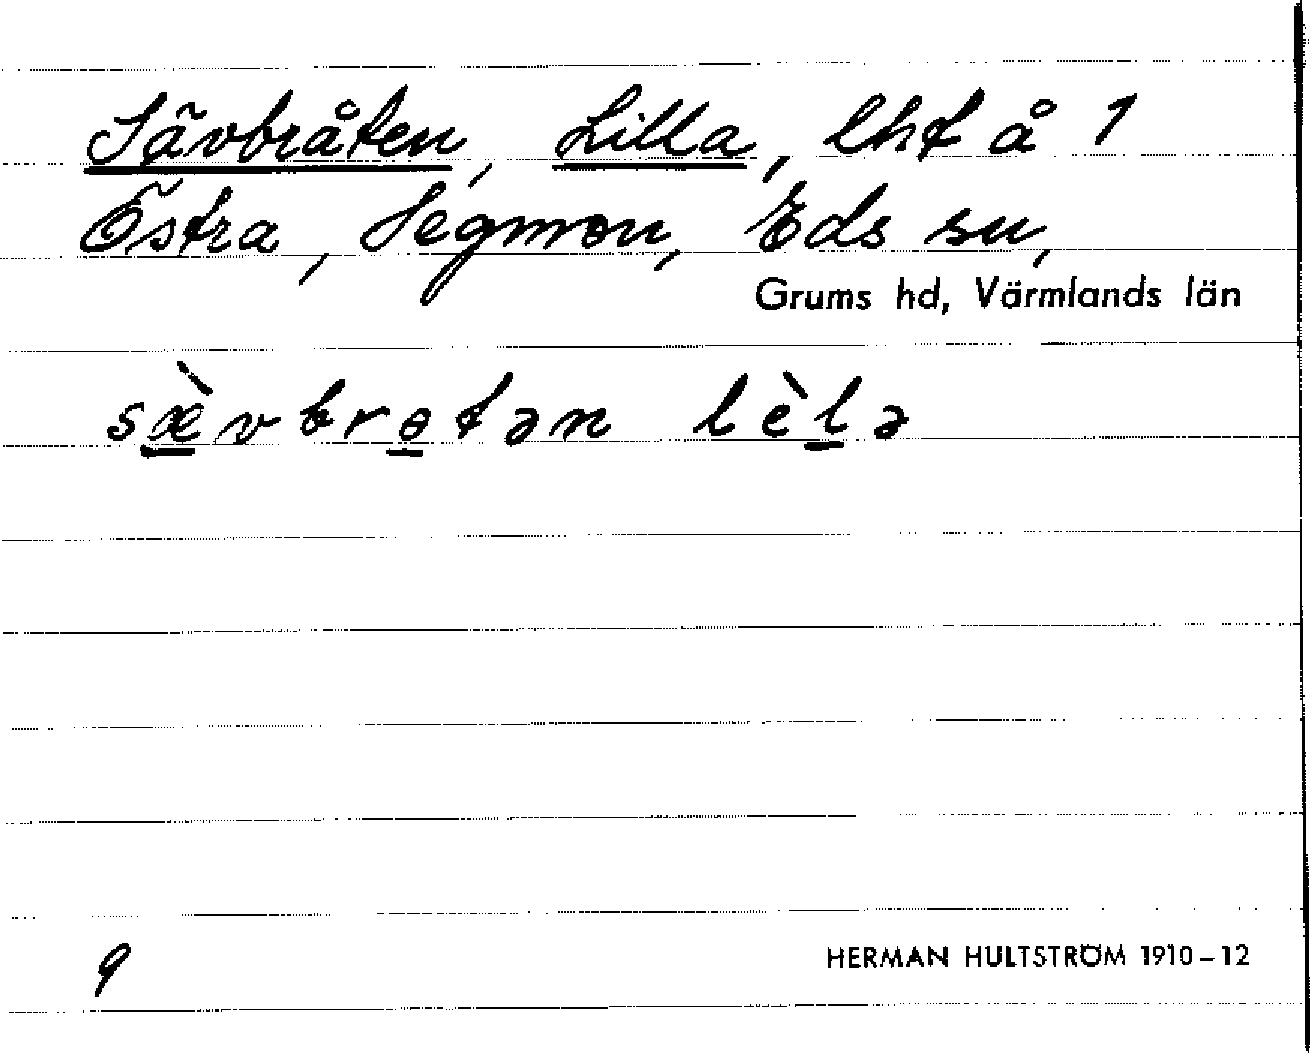 Sävbråten, Lilla, lht å 1
Östra, Segmon, Eds sn,
Grums hd, Värmlands län
sæ̀vbrɵtən lèlə
9
HERMAN HULTSTRÖM 1910–12